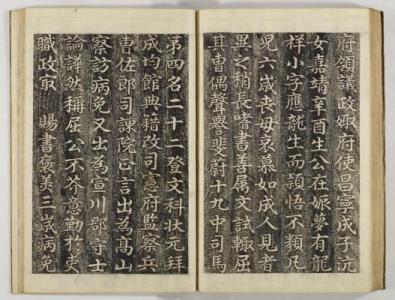 府領議政娵府使昌寧成子沆
女嘉靖辛酉生公在娠夢有龍
様小字應龍生而頴悟不類凡
児六歳喪母哀慕如成人見者
異之稍長嗜書善属文試輒屈
其曹偶聲譽斐蔚十九中司馬
第四名二十二登文科状元拜
成均館典籍改司憲府監察兵
曹佐郎司諫院正言出為高山
察訪病免又出為宣川郡守士
論譁然稱屈公不介意勤於吏
職政最 賜書褒美三歳病免